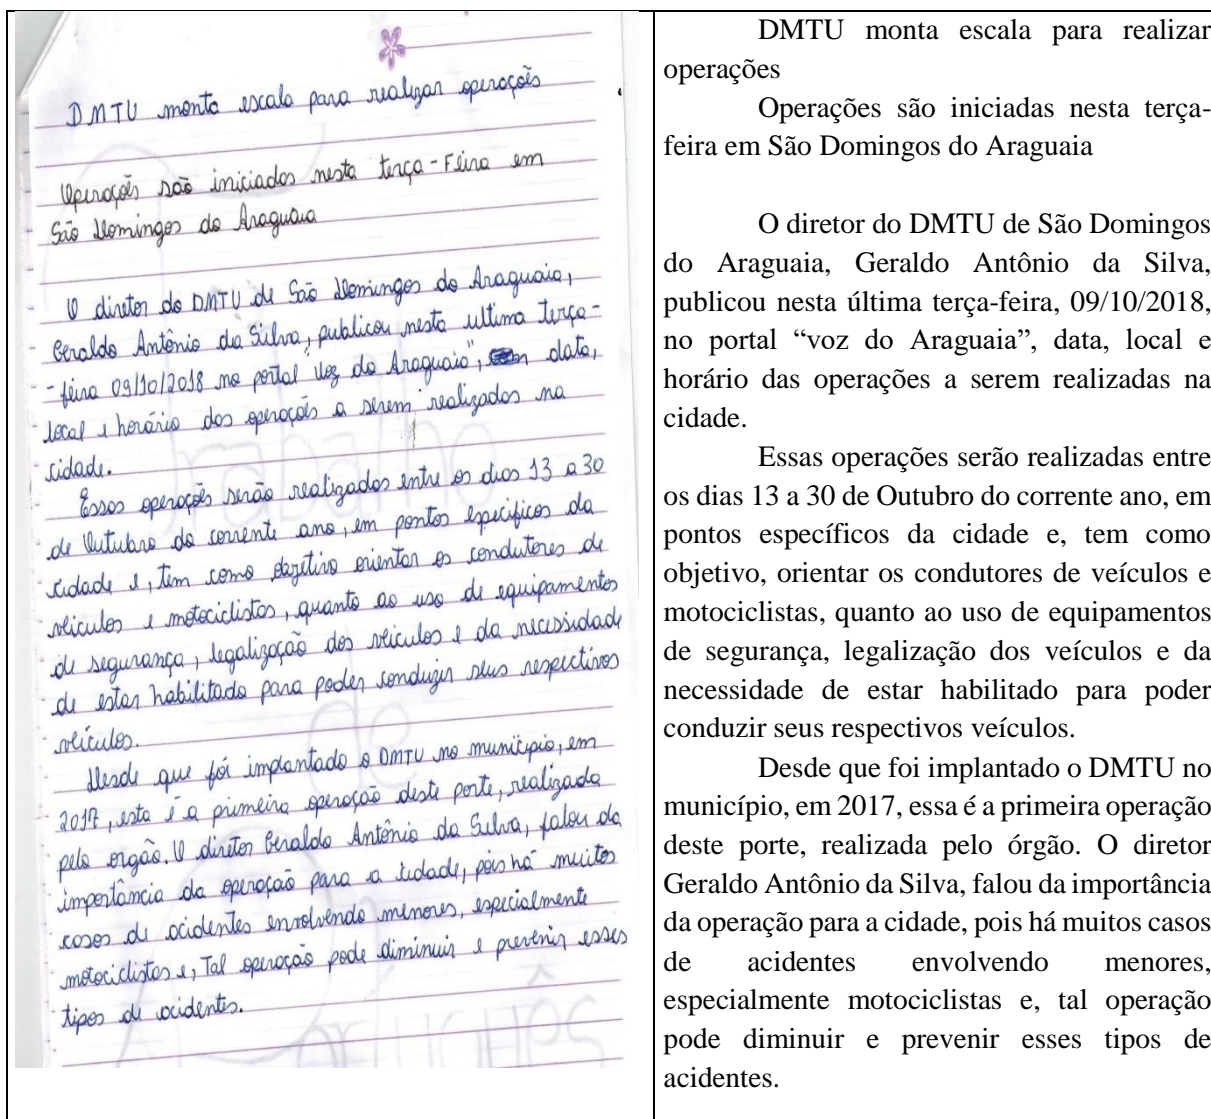 DMTU monta escala para realizar operações
Operações são iniciadas nesta terça-Feira em
São Domingos do Araguaia
O diretor do DMTU de São Domingos do Araguaia,
Geraldo Antônio da Silva, publicou nesta ultima terça-
-feira 09/10/2018 no portal voz do Araguaia", data,
local e horário das operações a serem realizados na
cidade.
Essas operações serão realizadas entre os dias 13 a 30
de Outubro do corrente ano, em pontos específicos da
cidade e, tem como objetivo orientar os condutores de
veículos e motociclistas, quanto ao uso de equipamentos
de segurança, legalização dos veículos e da necessidade
de estar habilitado para poder conduzir seus respectivos
veículos.
Desde que foi implantado o DMTU no município, em
2017, esta é a primeira operação deste porte, realizada
pelo orgão. O diretor Geraldo Antônio da Silva, falou da
importância da operação para a cidade, pois há muitos
casos de acidentes envolvendo menores, especialmente
motociclistas e, Tal operação pode diminuir e prevenir esses
tipos de acidentes.
DMTU monta escala para realizar
operações
Operações são iniciadas nesta terça-
feira em São Domingos do Araguaia
O diretor do DMTU de São Domingos
do Araguaia, Geraldo Antônio da Silva,
publicou nesta última terça-feira, 09/10/2018,
no portal “voz do Araguaia”, data, local e
horário das operações a serem realizadas na
cidade.
Essas operações serão realizadas entre
os dias 13 a 30 de Outubro do corrente ano, em
pontos específicos da cidade e, tem como
objetivo, orientar os condutores de veículos e
motociclistas, quanto ao uso de equipamentos
de segurança, legalização dos veículos e da
necessidade de estar habilitado para poder
conduzir seus respectivos veículos.
Desde que foi implantado o DMTU no
município, em 2017, essa é a primeira operação
deste porte, realizada pelo órgão. O diretor
Geraldo Antônio da Silva, falou da importância
da operação para a cidade, pois há muitos casos
de acidentes envolvendo menores,
especialmente motociclistas e, tal operação
pode diminuir e prevenir esses tipos de
acidentes.